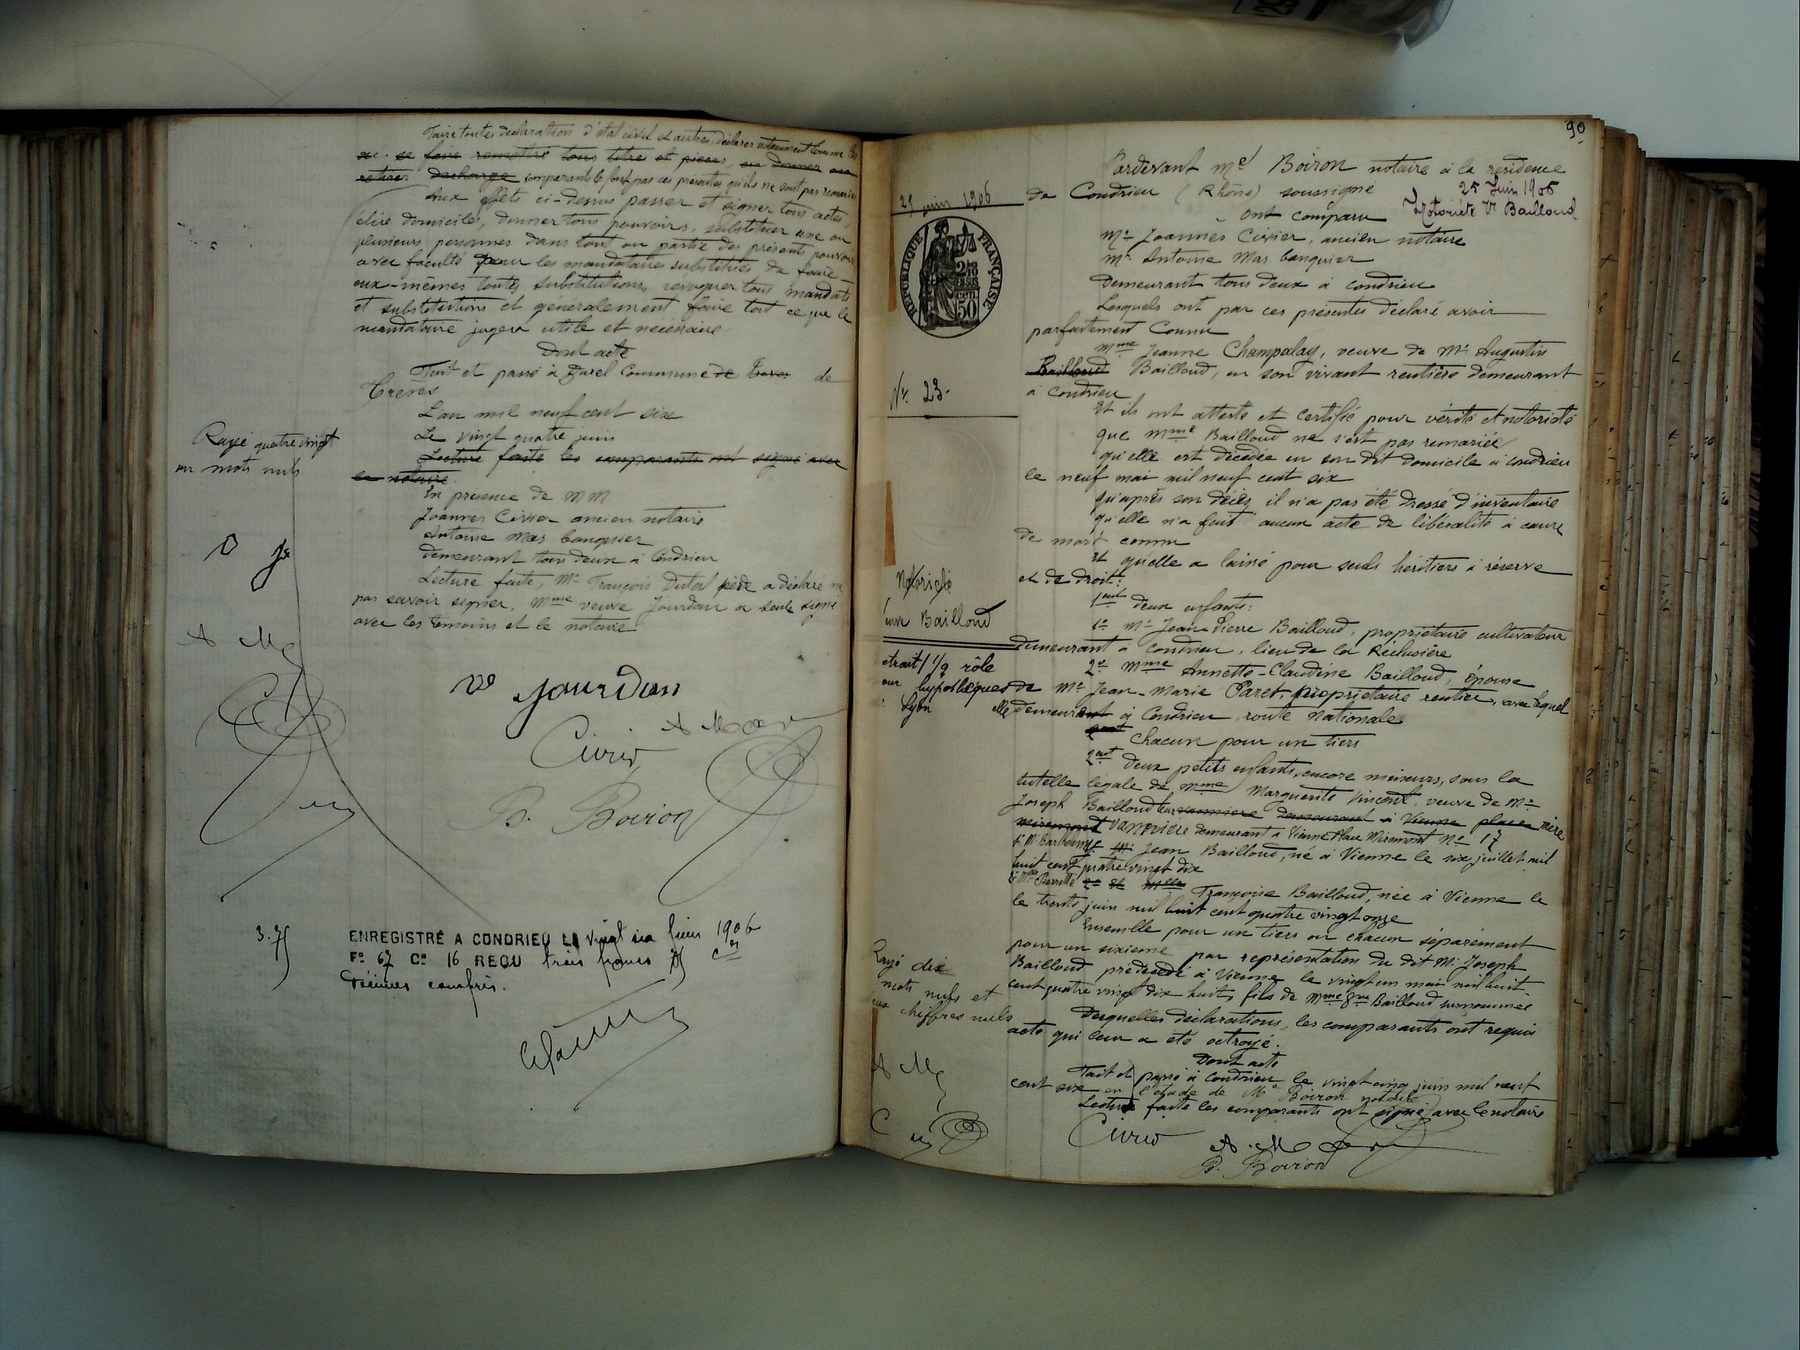 faire toutes déclarations d'état civil et autres, déclarer notamment comme les
se faire remettre tous titres et pièces, en donner ou
retirer décharge comparants le font par ces présentes qu'ils ne sont pas remariés
Aux effets ci-dessus passer et signer tous actes,
élire domiciles, donner tous pouvoirs, substituer une ou
plusieurs personnes dans tout ou partie des présents pouvoirs
avec faculté pour les mandataires substitués de faire
eux-mêmes toutes substitutions, révoquer tous mandats
et substitutions et généralement faire tout ce que le
mandataire jugera utile et nécessaire
Dont acte
Fait et passé à Commune de Trèves de
Trèves
L'an mil neuf cent six
Le vingt quatre juin
Lecture faite les comparants ont signé avec
le notaire
En présence de MM
Joannes Civier ancien notaire
Antoine Mas banquier
demeurant tous deux à Condrieu
Lecture faite, Mr François père a déclaré ne
pas savoir signer, Mme veuve Jourdan a seule signé
avec les témoins et le notaire
Rayé quatre vingt
un mots nuls
D J
A M
Ve Jourdan
A Mas
Civier
B. Boiron
3.75
ENREGISTRÉ A CONDRIEU LE vingt six juin 1906
Fo 67 Co 16 REÇU trois francs 75 Ces
Décimes compris.
90
Pardevant Me Boiron notaire à la résidence
de Condrieu (Rhône) soussigné
25 Juin 1906
Notoriété Ve Bailloud
ont comparu
Mr Joannes Civier, ancien notaire
Mr Antoine Mas banquier
Demeurant tous deux à Condrieu
Lesquels ont par ces présentes déclaré avoir
parfaitement Connu
Mme Jeanne Champalay, veuve de Mr Augustin
Bailloud Bailloud, en son vivant rentière demeurant
à Condrieu
Et ils ont attesté et certifié pour vérité et notoriété
que Mme Bailloud ne s'est pas remariée
qu'elle est décédée en son dit domicile à Condrieu
le neuf mai mil neuf cent six
qu'après son décès, il n'a pas été dressé d'inventaire
qu'elle n'a fait aucun acte de libéralité à cause
de mort connu
Et qu'elle a laissé pour seuls héritiers à réserve
et de droit:
1ent deux enfants:
1° Mr Jean-Pierre Bailloud, propriétaire cultivateur
demeurant à Condrieu, lieu de la Réclusière
2° Mme Annette-Claudine Bailloud, épouse
de Mr Jean-Marie Paret, propriétaire rentier, avec lequel
elle demeurant à Condrieu, route Nationale
Chacun pour un tiers
2ent Deux petits enfants, encore mineurs, sous la
tutelle légale de Mme Marguerite Vincent, veuve de Mr
Joseph Bailloud leur vannière demeurant à Vienne place mère
miremont vannière demeurant à Vienne Place Miremont No 17
1° Mr Barthélemy Jean Bailloud, né à Vienne le six juillet mil
huit cent quatre vingt dix
2° Mlle Pierrette 2° Et Mlle Françoise Bailloud, née à Vienne le
le trente juin mil huit cent quatre vingt onze
Ensemble pour un tiers ou chacun séparément
pour un sixième par représentation du dit Mr Joseph
Bailloud prédécédé à Vienne le vingt un mai mil huit
cent quatre vingt dix huit, fils de Mme Vve Bailloud surnommée
Desquelles déclarations, les comparants ont requis
acte qui leur a été octroyé.
Dont acte
Fait et passé à Condrieu le vingt cinq juin mil neuf
cent six en l'étude de Me Boiron notaire
Lecture faite les comparants ont signé avec le notaire
Civier
A. Mas
B. Boiron
25 juin 1906
RÉPUBLIQUE FRANÇAISE
2/10 EN SUS
50 cen
No. 23.
Notoriété
Bailloud
extrait 1 1/2 rôle
hypothèques
Lyon
Rayé dix
mots nuls et
chiffres nuls
A M
C